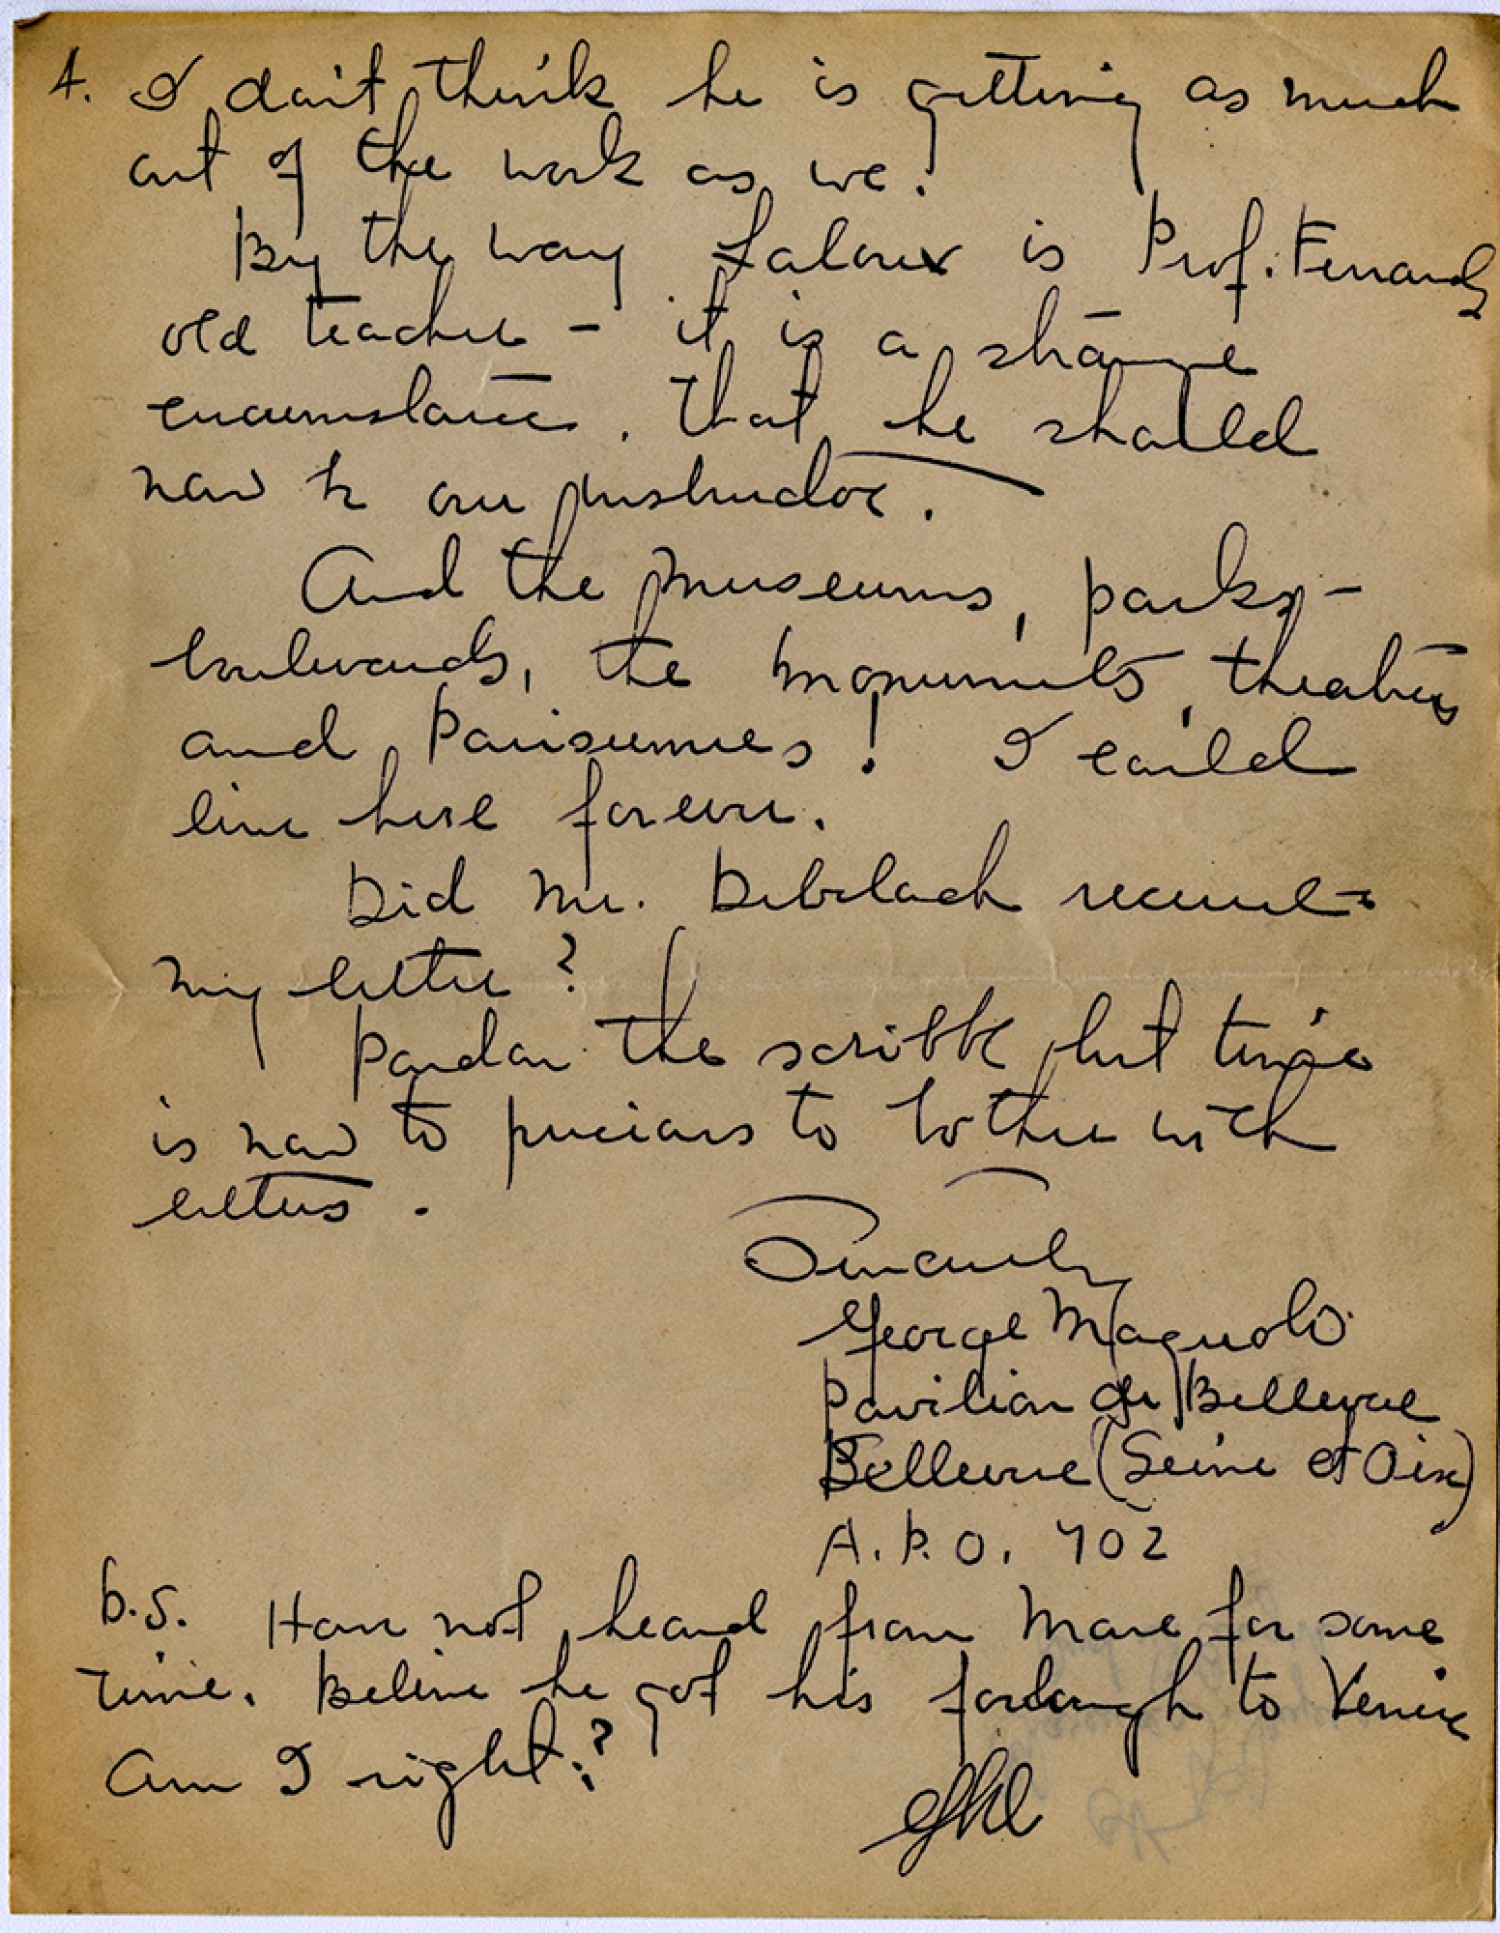 4. I don't think he is getting as much
out of the work as we.
By the way Laloux is Prof. Ferrands
old teacher - it is a strange
circumstance. that he should
now be our instructor.
And the museums, parks -
boulevards, the monuments, theatres
and Parisiennes! I could
live here forever.
Did Mr. Debelach receive -
my letter?
Pardon the scribble but time
is now to precious to bother with
letters.
Sincerely
George Magnolo
Pavilion de Bellevue
Bellevue (Seine et Oise)
A.P.O. 702
P.S. Have not heard from More for some
time. Believe he got his furlough to Venice
Am I right?